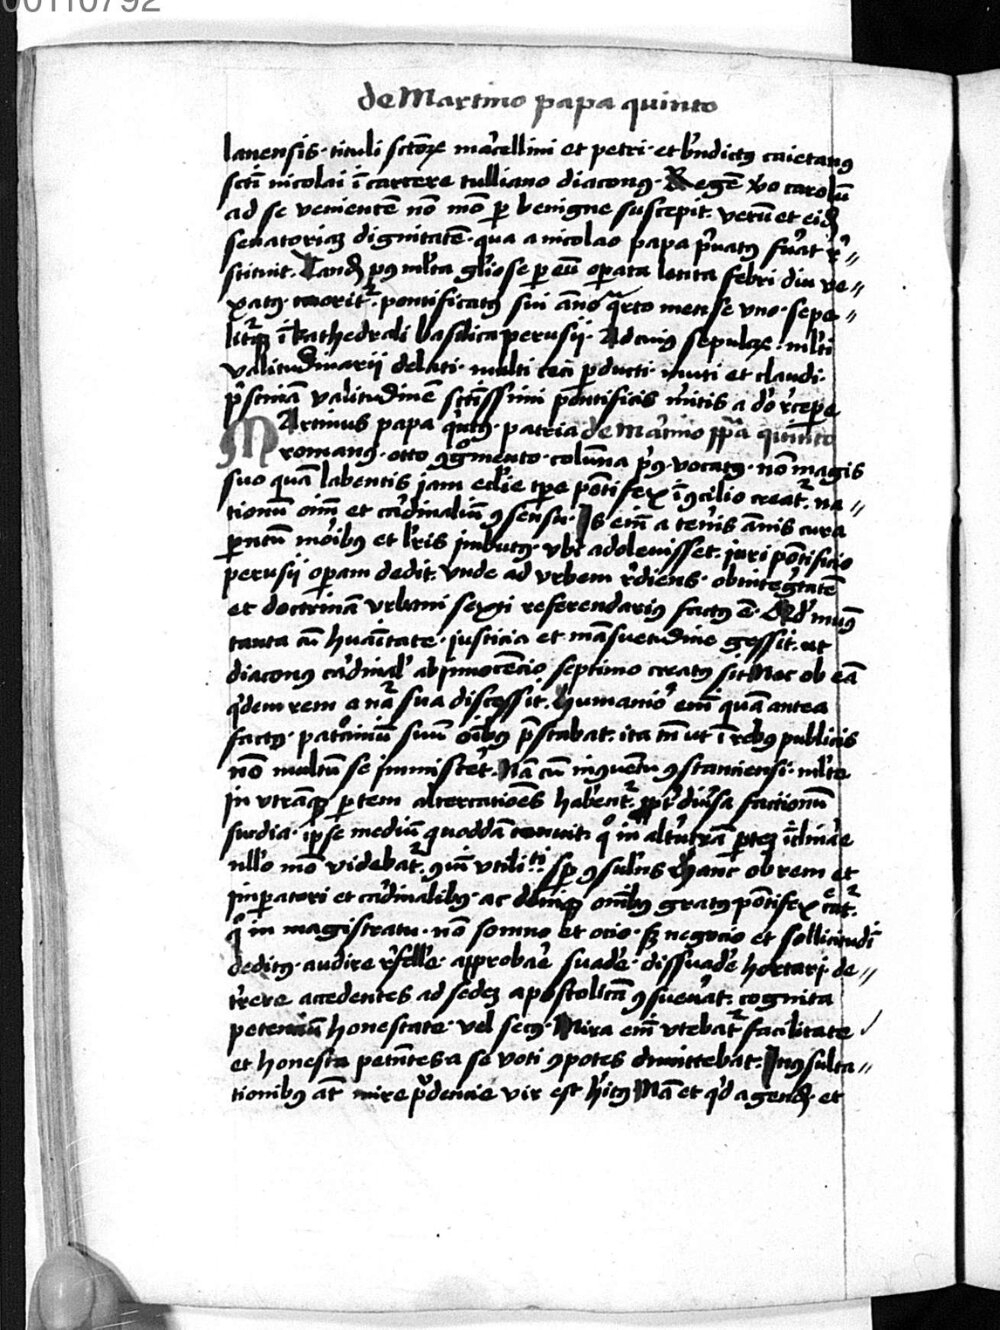 00110792
de Martino papa quinto
lanensis · tituli sctõꝝ mẚcellini et petri · et bñdictꝰ caietanꝰ
scti nicolai ĩ carcere tulliano diaconꝰ · Regẽ ꝟo carolũ
ad se venientẽ nõ mõ ꝑ benigne suscepit · verũ et eid̃
senatoriaꝫ dignitatẽ · qua a nicolao papa pͥuatꝰ fuẚt r̃〃
stituit · Tand̃ pꝰ mľta gľiose ꝑ eũ oꝑata lenta febri diu ve〃
xatꝰ · moritᷣ · pontificatꝰ sui ãno qͣrto mense vno · sepe〃
litᷣqꝫ ĩ kathedrali basilica perusij · Ad cuiꝰ sepulcꝝ · mľti
valitudinarij delati · multi ceci ꝑducti · muti et claudi ·
pͥstinã valitudinẽ sctĩssimi pontificis mĩtis a dõ r̃cepe
MArtinus papa qͥntꝰ · patria de Mẚtino pp̃a quinto
romanꝰ · otto ꝯgͦmento · colũna pͥꝰ · vocatꝰ · nõ magis
suo quã labentis jam ecľie tꝑe põtifex ĩ ꝯcilio creatᷣ · na〃
tionũ oĩm et cẚdinaliũ ꝯsensu · Is eĩm a teñis ãnis cura
pẽntũ moribꝰ et lr̃is jmbutꝰ · vbi adoleuisset · juri põtificio
perusij oꝑam dedit · vnde ad vrbem r̃diens · ob integͥtatẽ
et doctrinã vrbani sexti referendariꝰ factꝰ ẽ · Qd̓ munꝰ
tanta cũ huãitate · justicia et mãsuetudine gessit · ut
diaconꝰ cẚdinal̓ ab jnnocẽcio septimo creatꝰ sit Nec ob eã
qͥdem rem a nẚ sua discessit · humanioͬ eĩ quã antea
factꝰ · patͦciniũ suũ oĩbꝰ p̃stabat · ita tñ ut ĩ rebꝰ publicis
nõ multũ se jmmisceret · Nã cũ in ꝯuẽtu ꝯstanciensi · mľte
jn vtrãqꝫ ꝑtem altercatiões habẽntᷣ ꝓpť diũsa factionũ
studia · ipse mediũ quoddã tenuit · qͥ in alťutrã ꝑteꝫ ĩclinãe
nullo mõ videbatᷣ · ꝯmuĩ vtilitti sꝑ ꝯsulẽns Hanc ob rem et
jmꝑatori et cẚdinalibꝰ · ac deniqꝫ oĩbꝰ gratꝰ põtifex cẽatᷣ ·
qͥ in magistratu · nõ somno et ocio · sꝫ negocio et sollicitudĩ
deditꝰ · audire r̃felľe · approbãe suadẽ · dissuadẽ hortari de〃
ťrere accedentes ad sedeꝫ apostolicã ꝯsueũat · cognita
petenciũ honestate · vel secꝰ · Mira eĩm vtebatᷣ facilitate
et honesta petẽntes a se voti ꝯpotes dimittebat · In ꝯsulta〃
tionibꝰ aũt mire pͥdencie vir est h̓itꝰ Nã et qͥd agend̃ · et